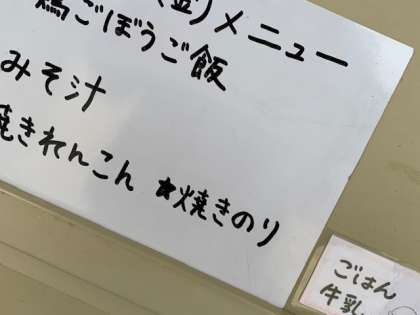 (金)メニュー
鶏ごぼうご飯
みそ汁
焼きれんこん ★焼きのり
ごはん
牛乳